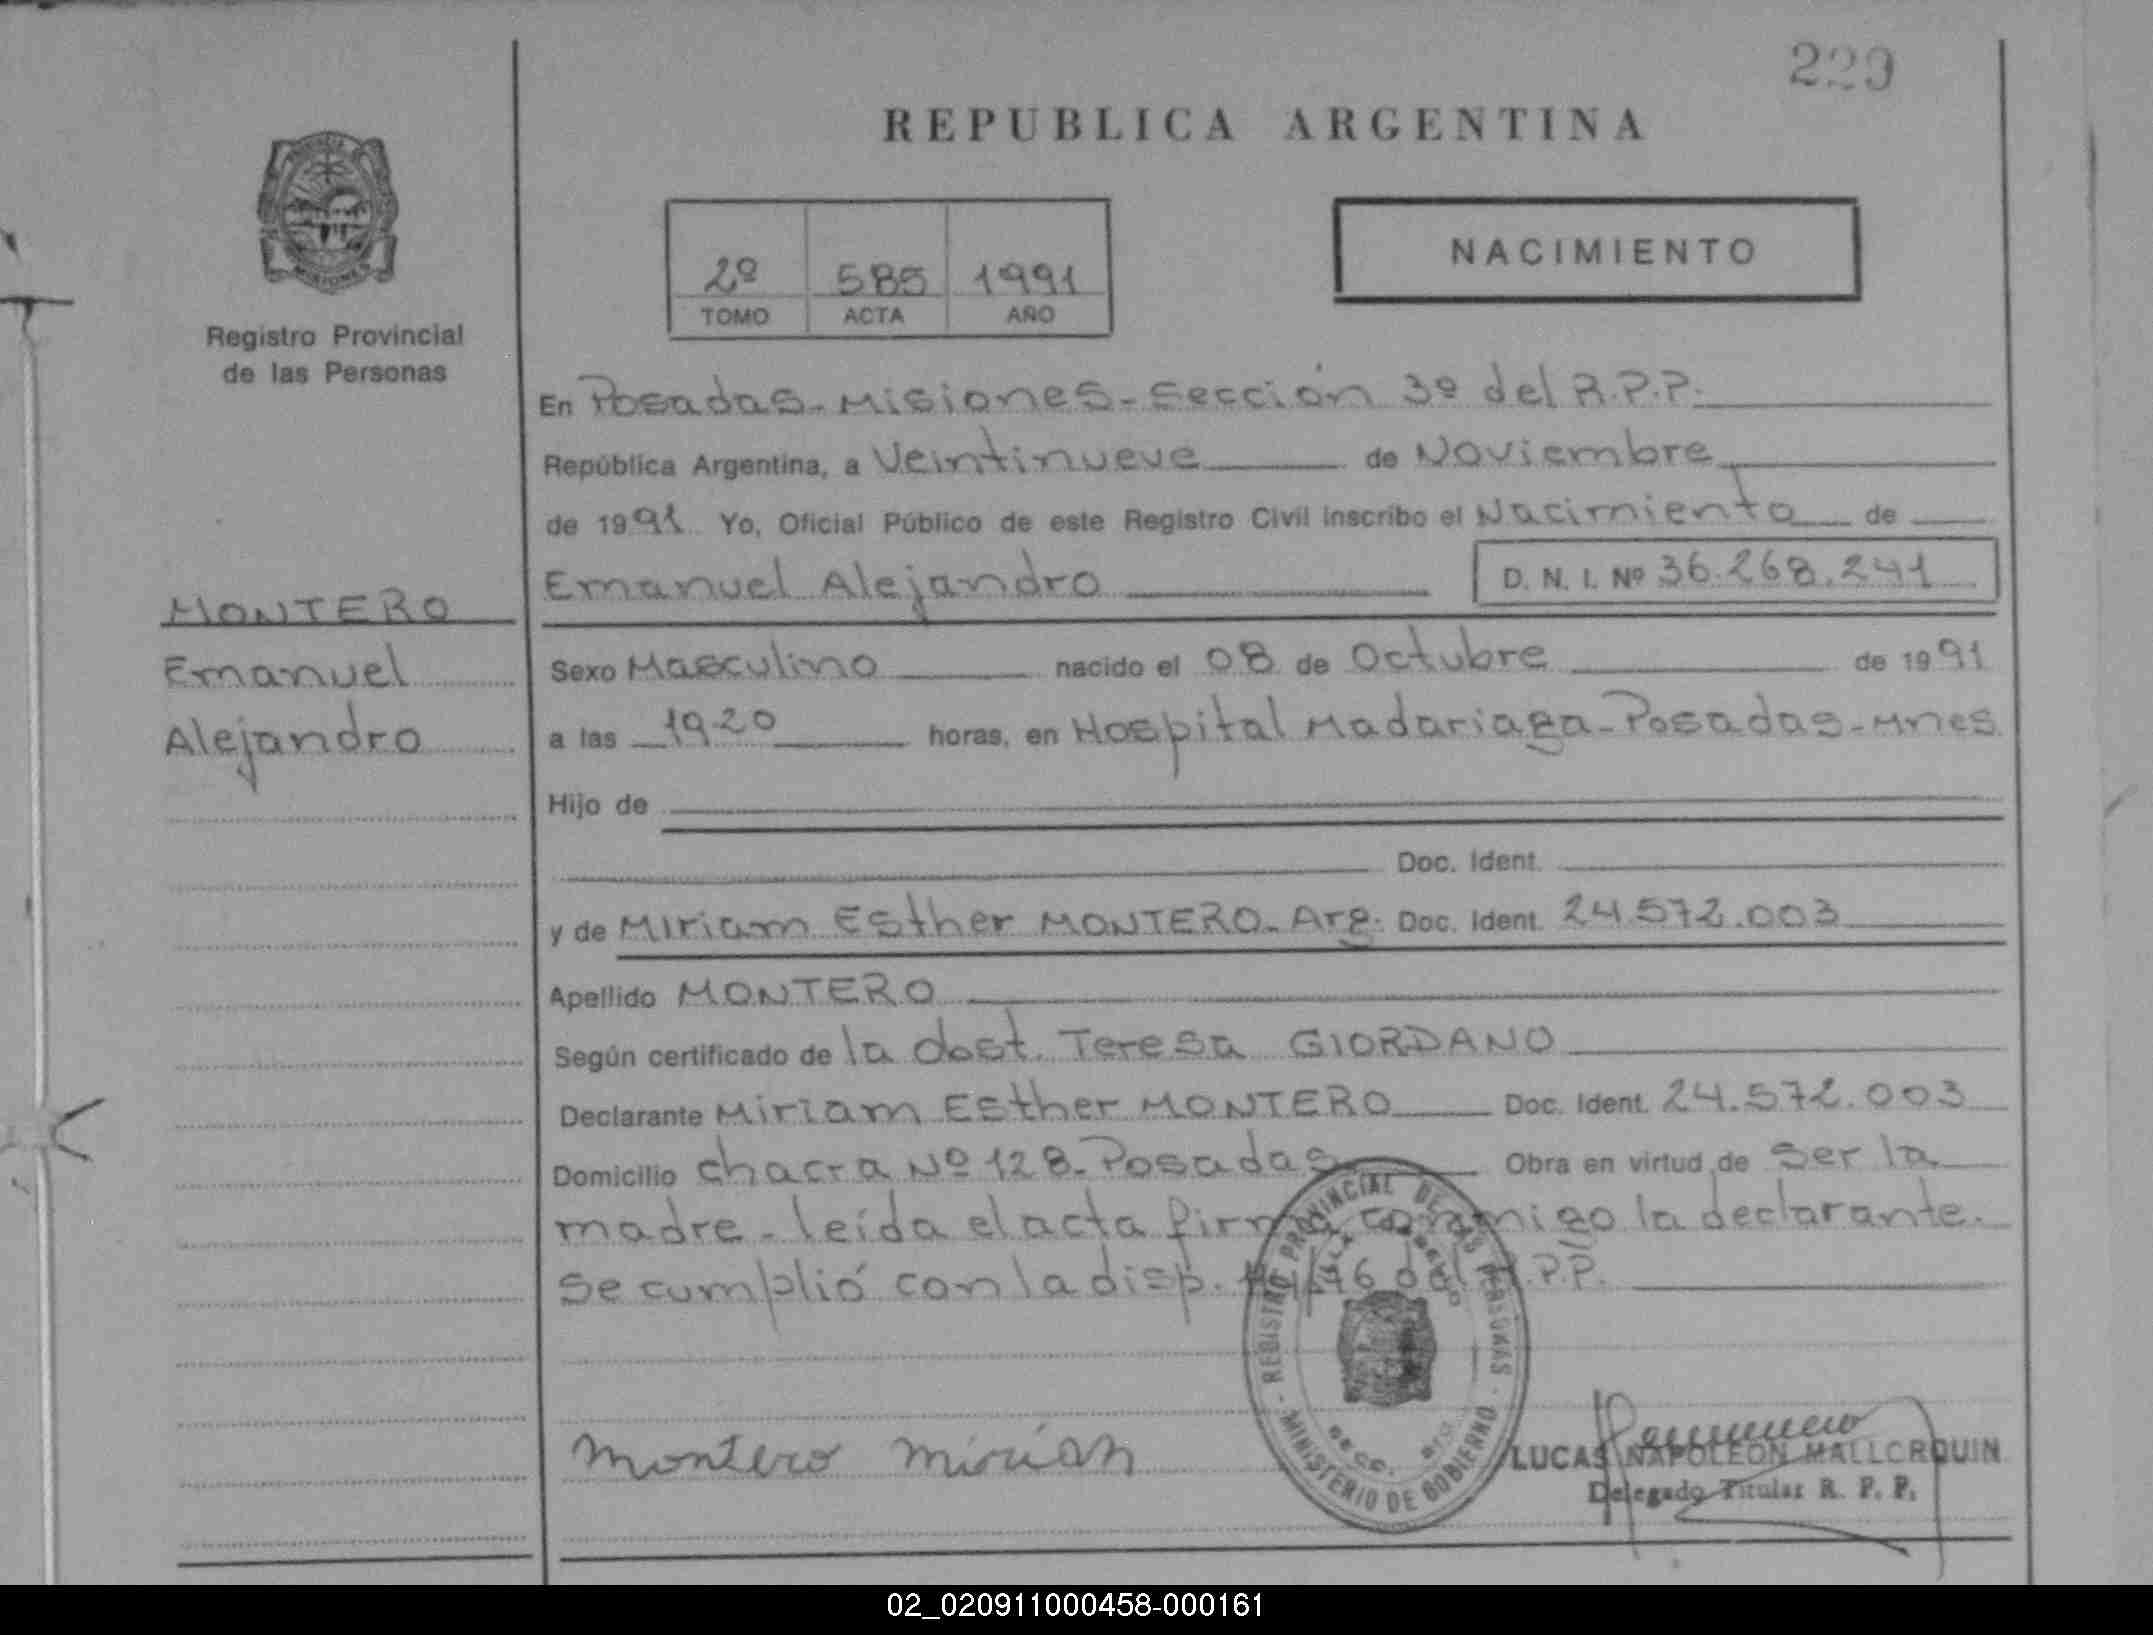 229
REPUBLICA ARGENTINA
2º 585 1991
TOMO ACTA AÑO
NACIMIENTO
Registro Provincial
de las Personas
En Posadas-Misiones-Sección 3º del R.P.P.
República Argentina, a Veintinueve de Noviembre
de 1991 Yo, Oficial Público de este Registro Civil inscribo el Nacimiento de
Emanuel Alejandro D. N. I. Nº 36.268.241
MONTERO
Emanuel
Alejandro
Sexo Masculino nacido el 08 de Octubre de 1991
a las 19.20 horas, en Hospital Madariaga-Posadas-Mnes.
Hijo de
Doc. Ident.
y de Miriam Esther MONTERO-Arg. Doc. Ident. 24.572.003
Apellido MONTERO
Según certificado de la obst. Teresa GIORDANO
Declarante Miriam Esther MONTERO Doc. Ident. 24.572.003
Domicilio chacra Nº 128-Posadas Obra en virtud de ser la
madre-leída el acta firma conmigo la declarante.
Se cumplió con la disp. /76 del R.P.P.
REGISTRO PROVINCIAL DE LAS PERSONAS
MINISTERIO DE GOBIERNO
Montero Mirian
LUCAS NAPOLEON MALLORQUIN
Delegado Titular R. P. P.
02_020911000458-000161